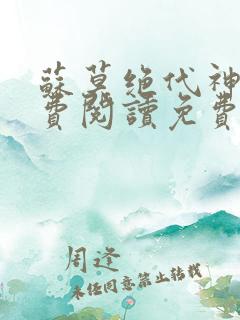 蘇莫绝代神
費閱讀免費
周逢
未经同意禁止转载